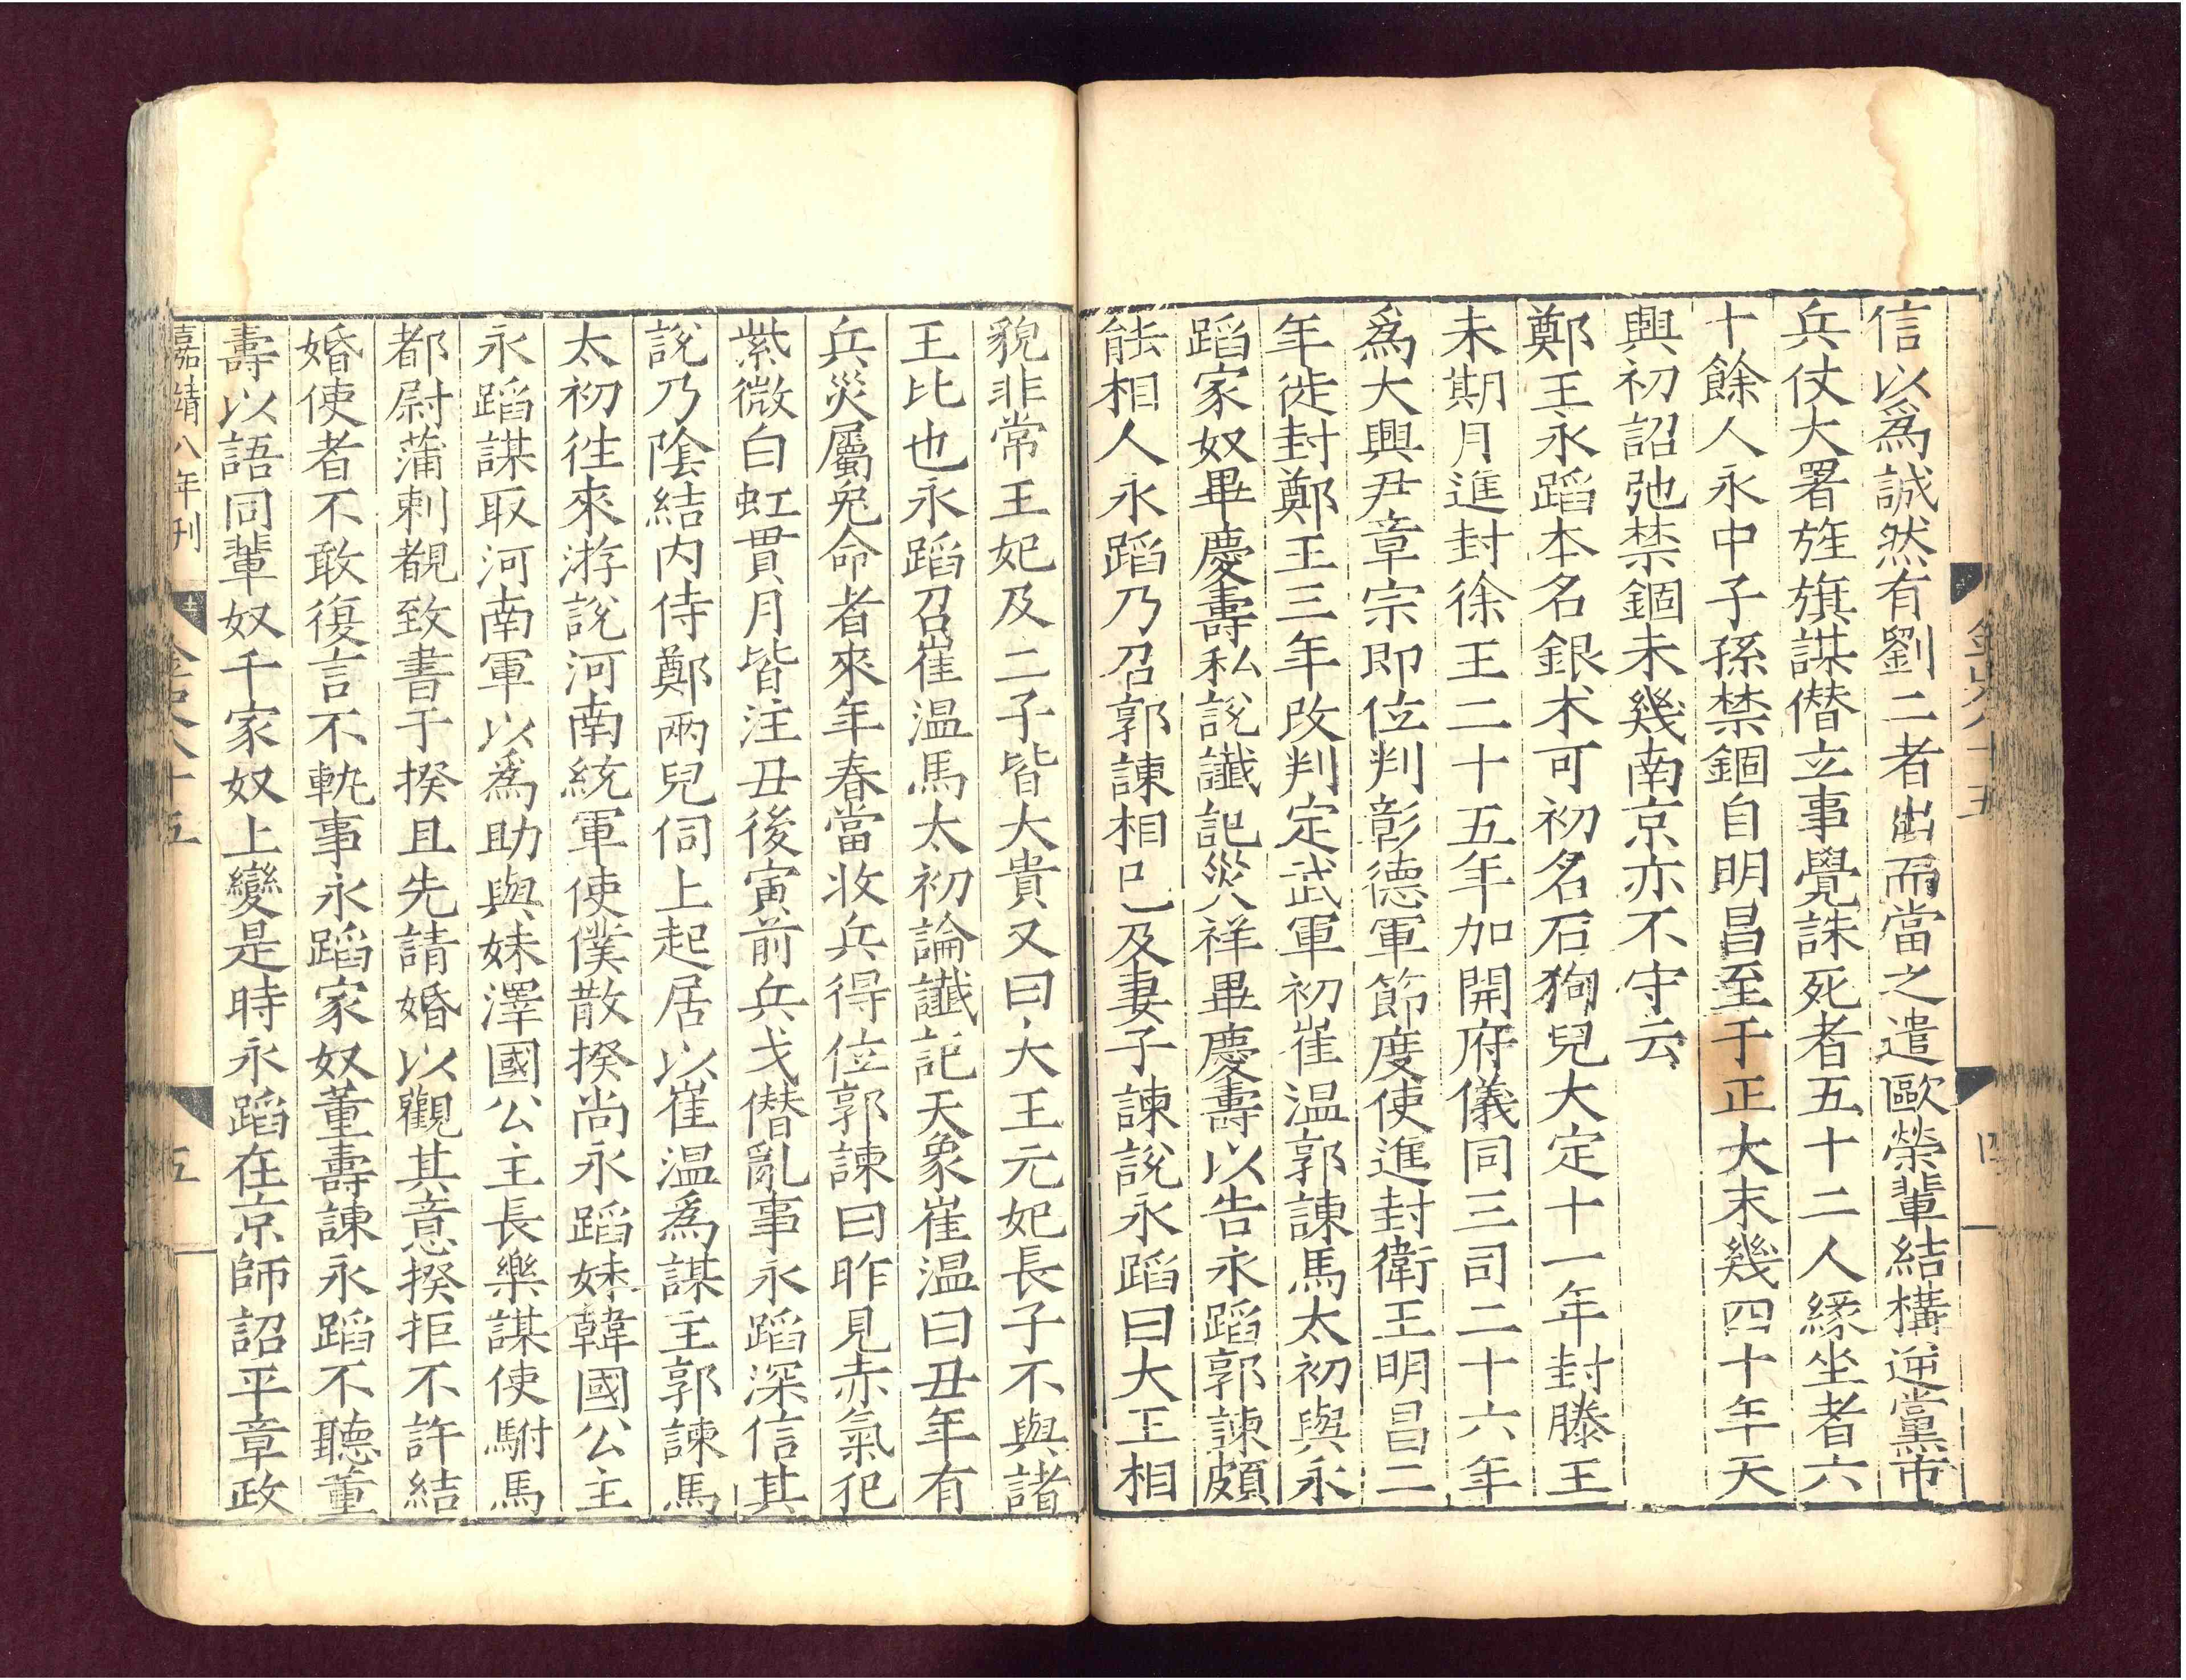 金史八十五
四
信以爲誠然有劉二者出而當之遣歐榮輩結構逆黨市
兵仗大署旌旗謀僭立事覺誅死者五十二人緣坐者六
十餘人永中子孫禁錮自明昌至于正大末幾四十年天
興初詔弛禁錮未幾南京亦不守云
鄭王永蹈本名銀术可初名石狗兒大定十一年封滕王
未期月進封徐王二十五年加開府儀同三司二十六年
爲大興尹章宗即位判彰德軍節度使進封衛王明昌二
年徙封鄭王三年改判定武軍初崔温郭諫馬太初與永
蹈家奴畢慶壽私說讖記災祥畢慶壽以告永蹈郭諫頗
能相人永蹈乃召郭諫相已及妻子諫說永蹈曰大王相
貌非常王妃及二子皆大貴又曰大王元妃長子不與諸
王比也永蹈召崔温馬太初論讖記天象崔温曰丑年有
兵災屬兔命者來年春當收兵得位郭諫曰昨見赤氣犯
紫微白虹貫月皆注丑後寅前兵戈僭亂事永蹈深信其
說乃陰結内侍鄭兩兒伺上起居以崔温爲謀主郭諫馬
太初徃來游說河南統軍使僕散揆尚永蹈妹韓國公主
永蹈謀取河南軍以爲助與妹澤國公主長樂謀使駙馬
都尉蒲剌覩致書于揆且先請婚以觀其意揆拒不許結
婚使者不敢復言不軌事永蹈家奴董壽諫永蹈不聽董
壽以語同輩奴千家奴上變是時永蹈在京師詔平章政
嘉靖八年刊
金史八十五
五